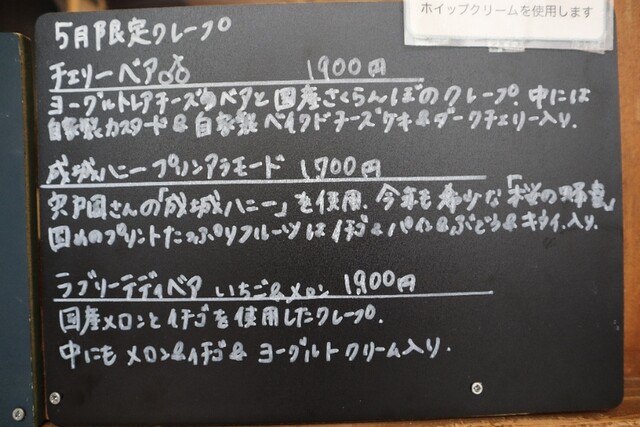 ホイップクリームを使用します
5月限定クレープ
チェリーベア 1900円
ヨーグルトレアチーズのベアと国産さくらんぼのクレープ。中には
自家製カスタード&自家製ベイクドチーズケーキ&ダークチェリー入り。
成城ハニープリンアラモード 1,700円
宍戸園さんの「成城ハニー」を使用。今年も希少な「桜の
固めのプリンとたっぷりフルーツはイチゴ&パイン&ぶどう&キウイ入り。
ラブリーテディベア いちご&メロン 1,900円
国産メロンとイチゴを使用したクレープ。
中にもメロン&イチゴ&ヨーグルトクリーム入り。